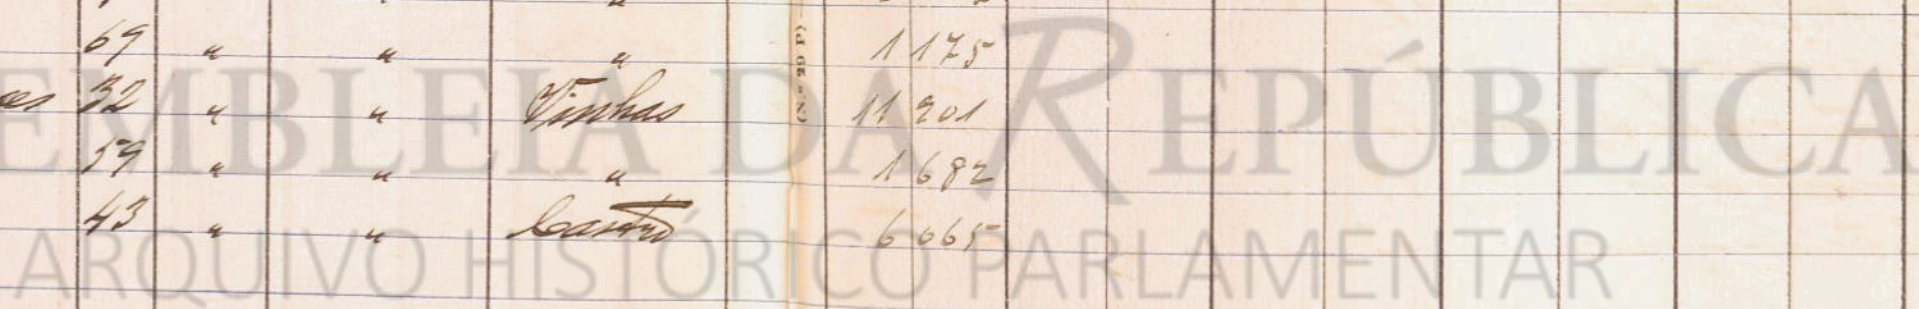 69 " " " 1 175
es 32 " " Vinhas 11 201
59 " " " 1 682
43 " " Castro 6 065
(N.º 20 P)
ASSEMBLEIA DA REPÚBLICA
ARQUIVO HISTÓRICO PARLAMENTAR